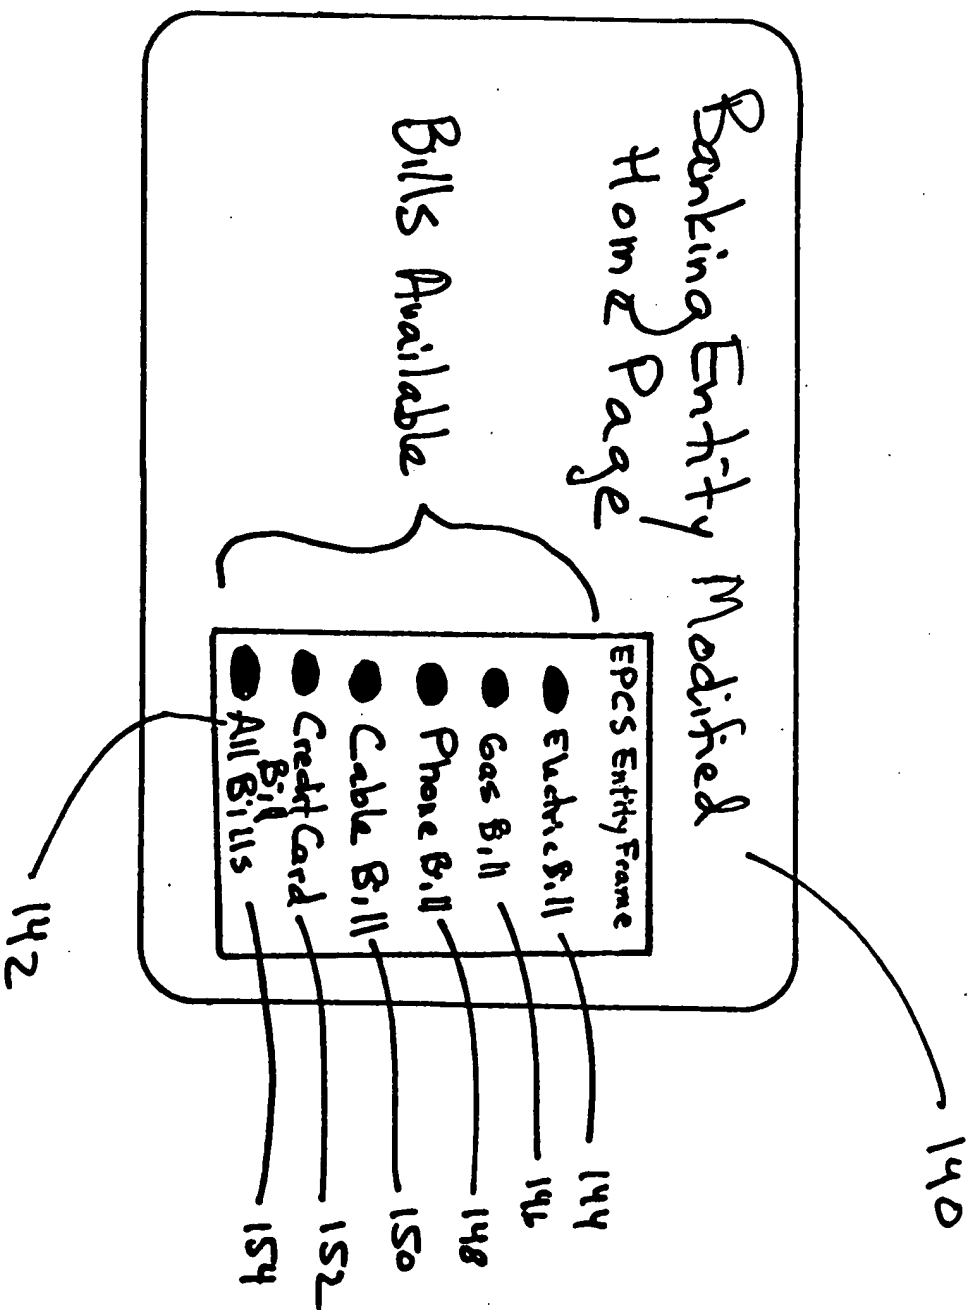 Banking Entity Modified
Home Page
Bills Available
EPCS Entity Frame
Electric Bill
Gas Bill
Phone Bill
Cable Bill
Credit Card
Bill
All Bills
140
142
144
146
148
150
152
154